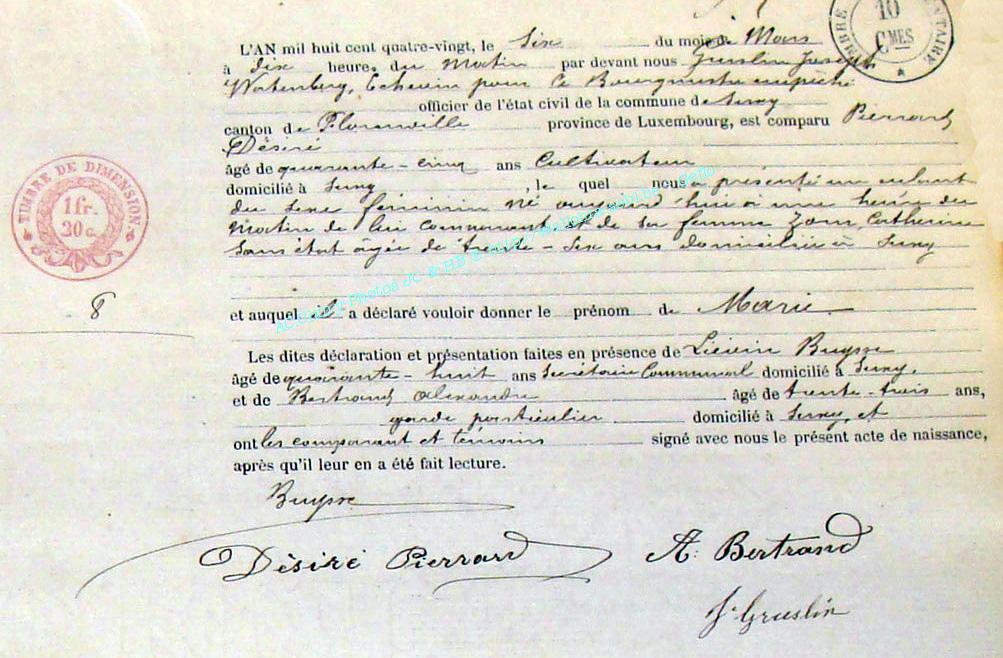 TIMBRE
10
CMES
L'AN mil huit cent quatre-vingt, le Six du mois de Mars
à dix heures du Matin par devant nous Gruslin Joseph
Echevin pour le Bourgmestre empêché
officier de l'état civil de la commune de Suxy
canton de Florenville province de Luxembourg, est comparu Pierrard
Désiré
âgé de quarante-cinq ans Cultivateur
domicilié à Suxy, le quel nous a présenté un enfant
du sexe féminin né aujourd'hui à une heure du
Matin de lui comparant et de sa femme Catherine
sans état âgée de trente-six ans domiciliée à Suxy
et auquel il a déclaré vouloir donner le prénom de Marie
Les dites déclaration et présentation faites en présence de Liévin Buysse
âgé de quarante-huit ans Secrétaire Communal domicilié à Suxy,
et de Bertrand Alexandre âgé de trente-trois ans,
garde particulier domicilié à Suxy, et
ont les comparant et témoins signé avec nous le présent acte de naissance,
après qu'il leur en a été fait lecture.
TIMBRE DE DIMENSION
1 fr.
20 c.
8
Buysse
Désiré Pierrard
A. Bertrand
J. Gruslin